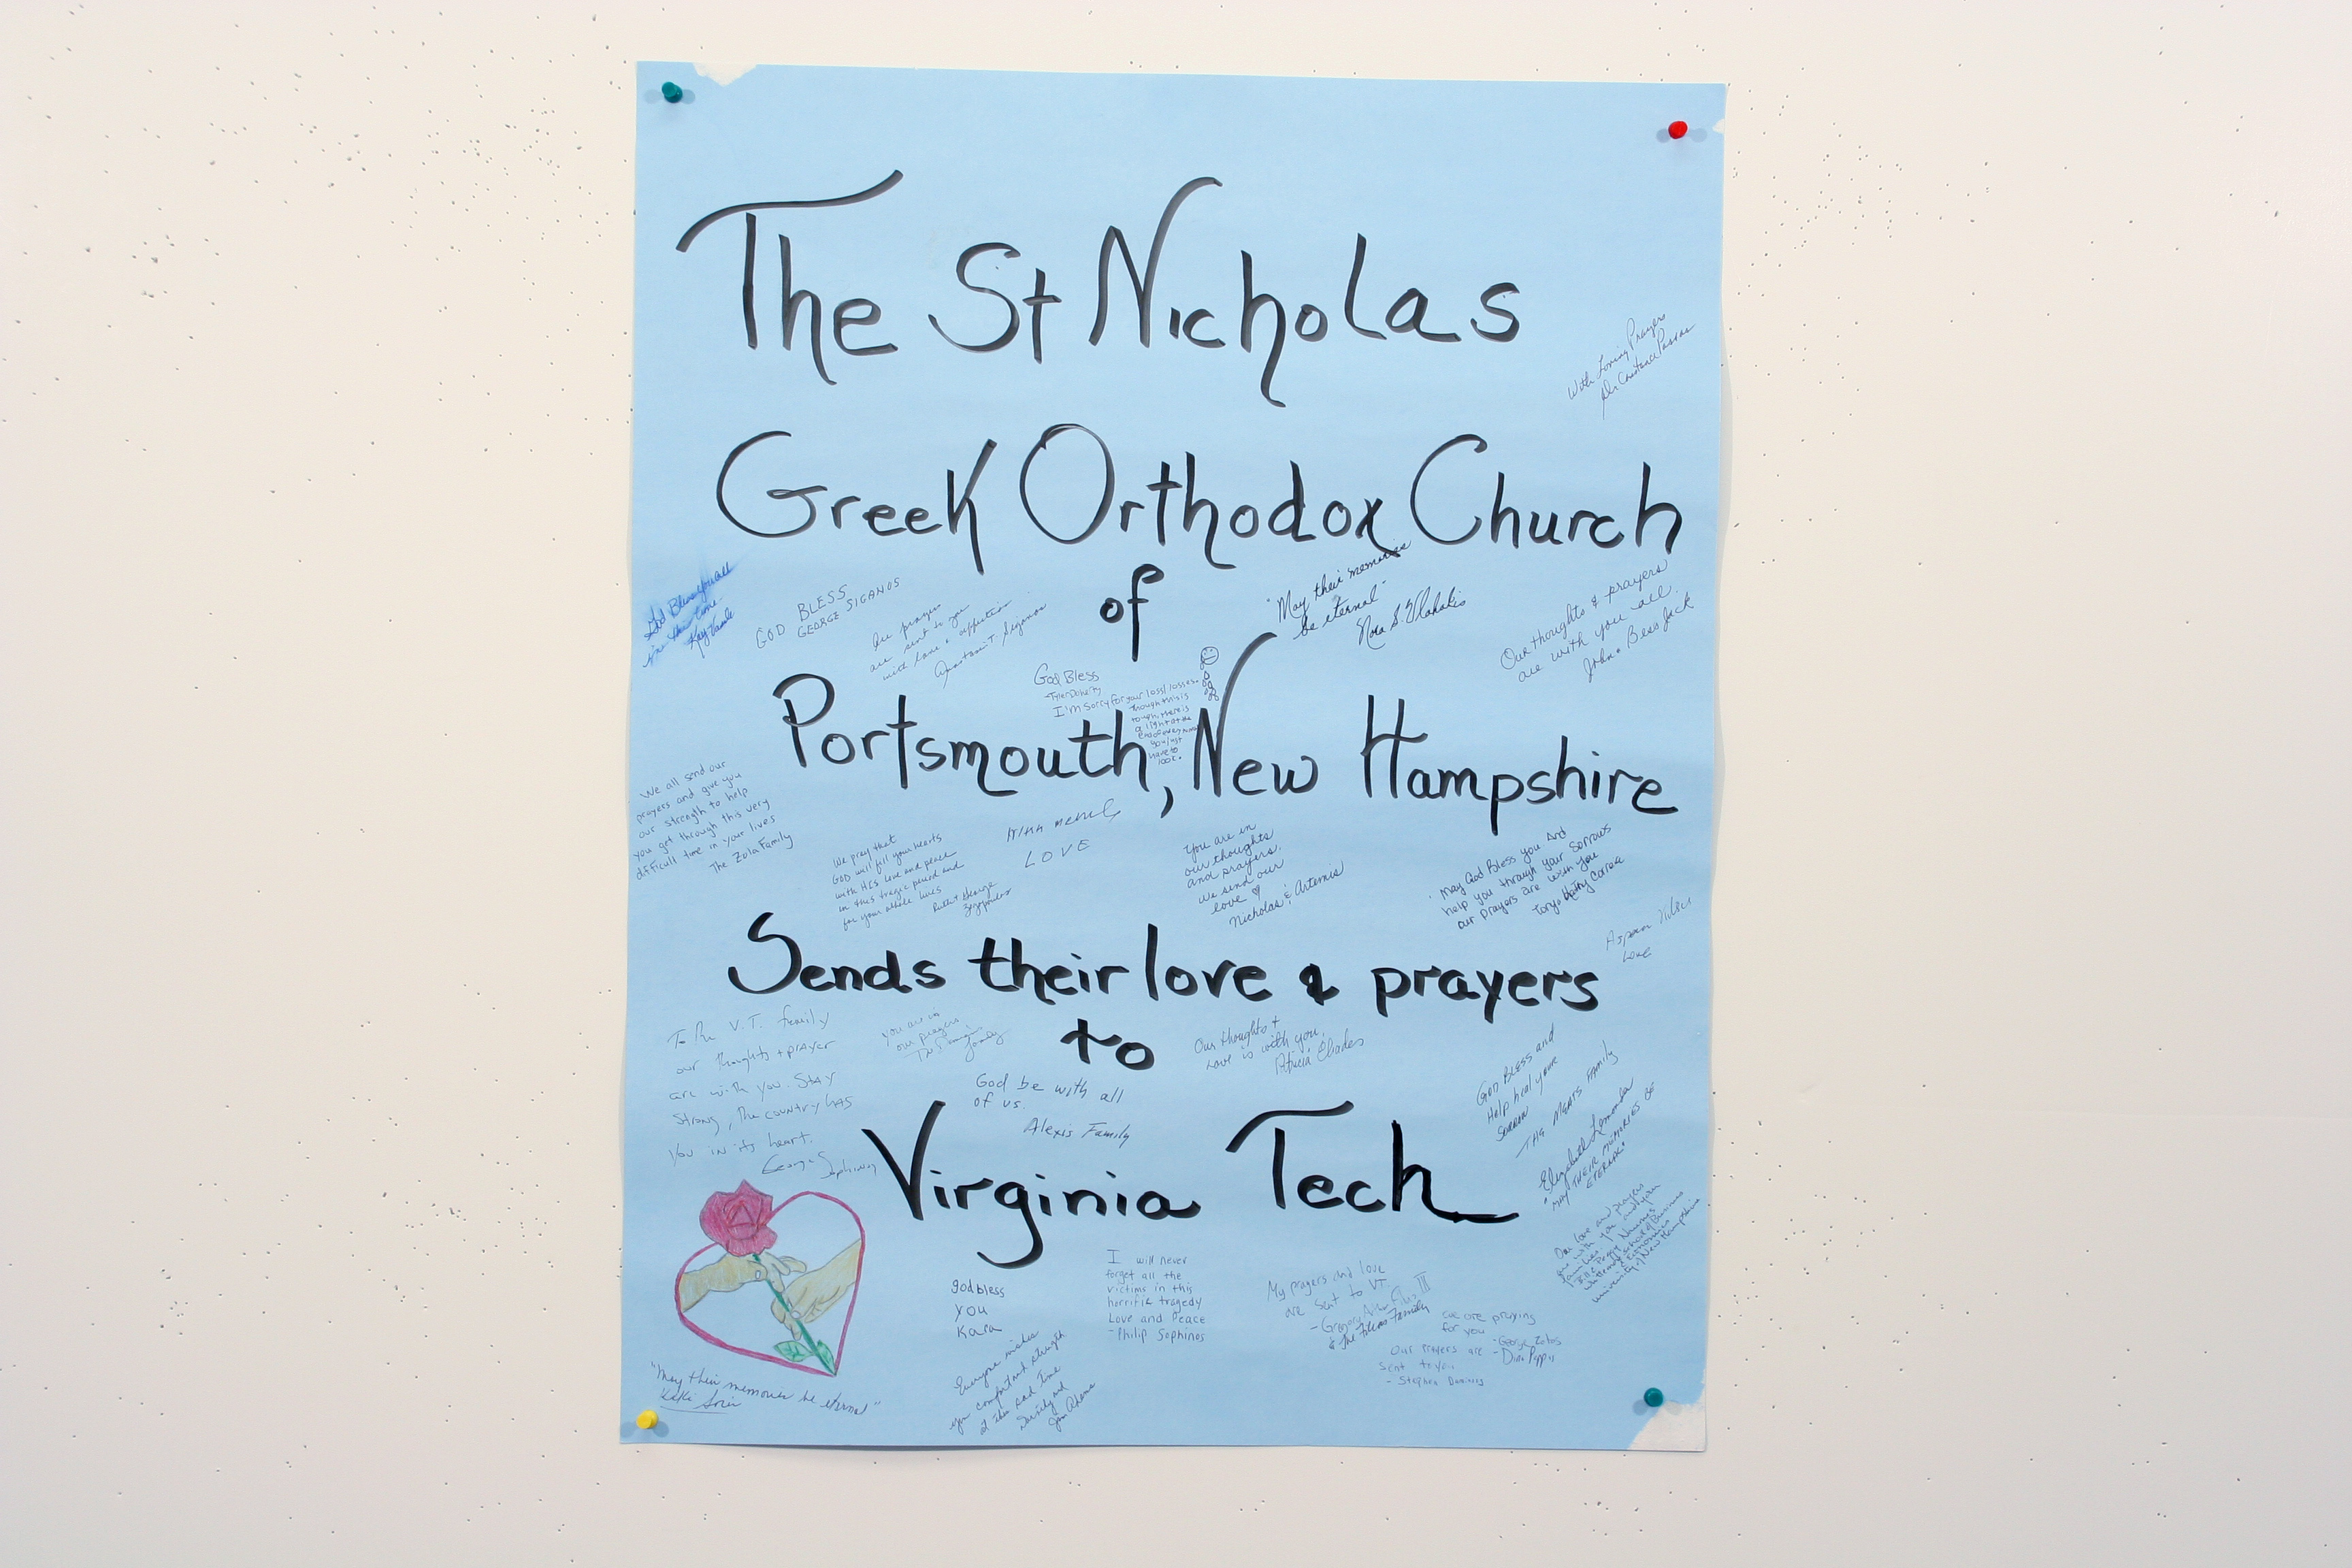 The St Nicholas
With Loving Prayers
Greek Orthodox Church
of
God Bless you all
in this time
GOD BLESS
GEORGE SIGANOS
prayers
are sent to you
with love & affection
"May their memories
be eternal"
Our thoughts & prayers
are with you all.
John & Bess Jack
God Bless
-Tyler Doherty
I'm sorry for your loss/losses.
though this is
rough, there is
a light at the
end of every
you just
have to
look.
Portsmouth, New Hampshire
We all send our
prayers and give you
our strength to help
you get through this very
difficult time in your lives
The Zola Family
We pray that
GOD will fill your hearts
with HIS love and peace
in this tragic period and
for your whole lives
Ruth & George
LOVE
You are in
our thoughts
and prayers.
We send our
love ♡
Nicholas & Artemis
May God Bless you And
help you through your Sorrows
our prayers are with you
Tony & Kathy Correa
Love
Sends their love & prayers
to
To the V.T. family
our thoughts + prayer
are with you. Stay
Strong, the country has
you in its heart.
you are in
our prayers
family
Our thoughts +
Love is with you,
God be with all
of us.
Alexis Family
GOD BLESS and
Help heal your
SORROW
Virginia Tech
"MAY THEIR MEMORIES BE
ETERNAL"
Our love and prayers
are with you and your
families
University of New Hampshire
god bless
you
Kara
I will never
forget all the
victims in this
horrific tragedy
Love and Peace
-Philip Sophinos
My prayers and love
are sent to VT
we are praying
for you
-George Zotos
Our prayers are
sent to you
"May their memories be eternal"
Everyone wishes
you comfort and strength
at this sad time
Jim Adams